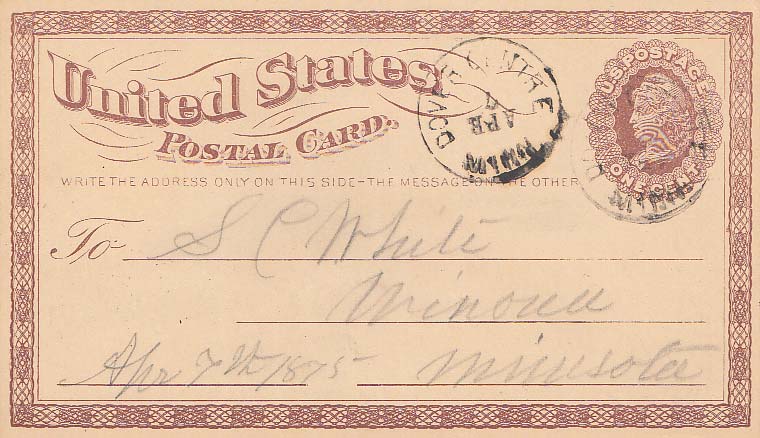 United States
POSTAL CARD.
U.S. POSTAGE
ONE CENT
CENTRE
APR
MINN
WRITE THE ADDRESS ONLY ON THIS SIDE-THE MESSAGE ON THE OTHER
To S C White
Winona
Apr 7th 1875 Minnesota